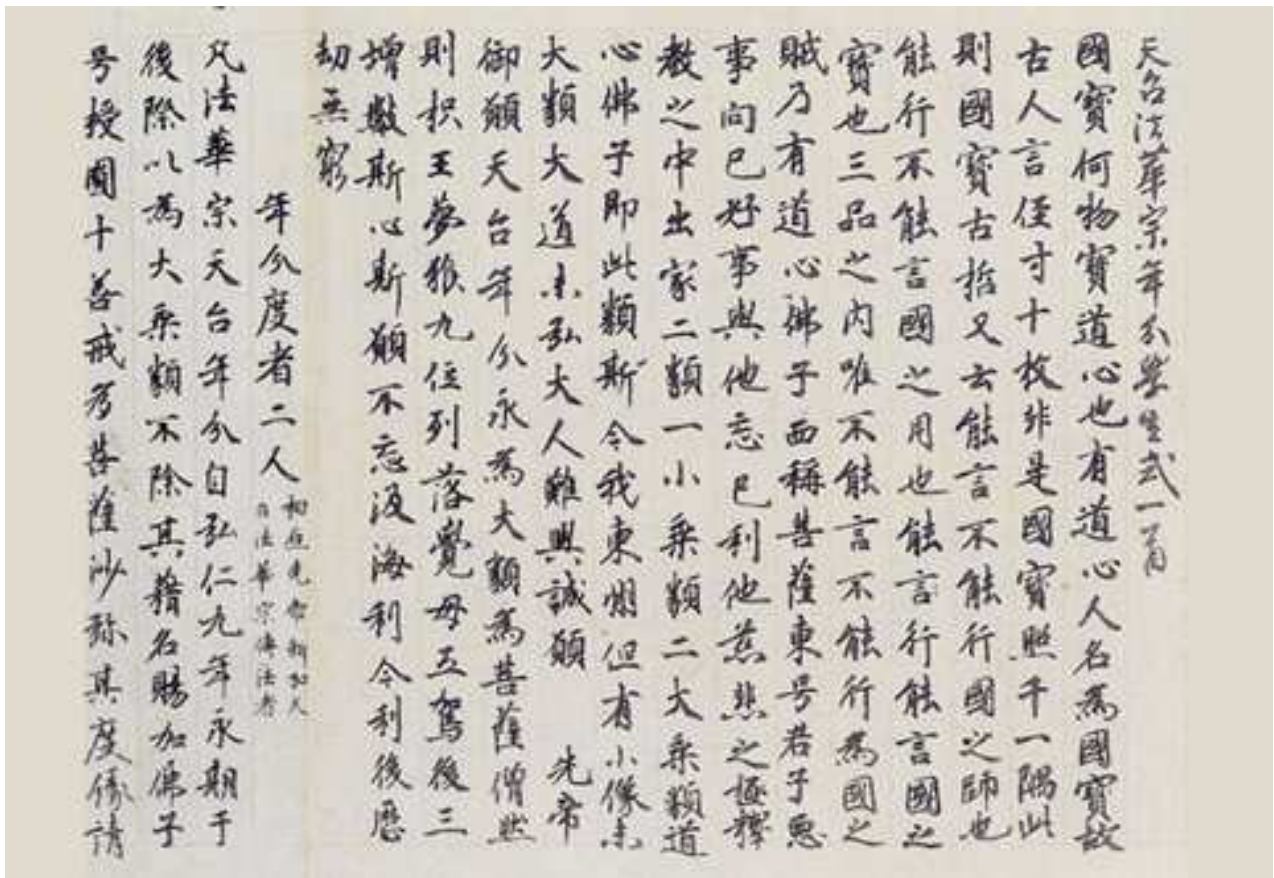 天台法華宗年分學生式一首
國寶何物寶道心也有道心人名為國寶故
古人言径寸十枚非是國寶照千一隅此
則國寶古哲又云能言不能行國之師也
能行不能言國之用也能言行能言國之
寶也三品之内唯不能言不能行為國之
賊乃有道心佛子西稱菩薩東号君子悪
事向己好事與他忘己利他慈悲之極釋
教之中出家二類一小乗類二大乗類道
心佛子即此類斯今我東州但有小像未
大類大道未弘大人難興誠願 先帝
御願天台年分永為大類為菩薩僧然
則枳王夢猴九位列落覺母五駕後三
増數斯心斯願不忘汲海利今利後歴
劫無窮
年分度者二人
柏原先帝新加天
台法華宗傳法者
凡法華宗天台年分自弘仁九年永期于
後際以為大乗類不除其籍名賜加佛子
号授圓十善戒為菩薩沙弥其度縁請